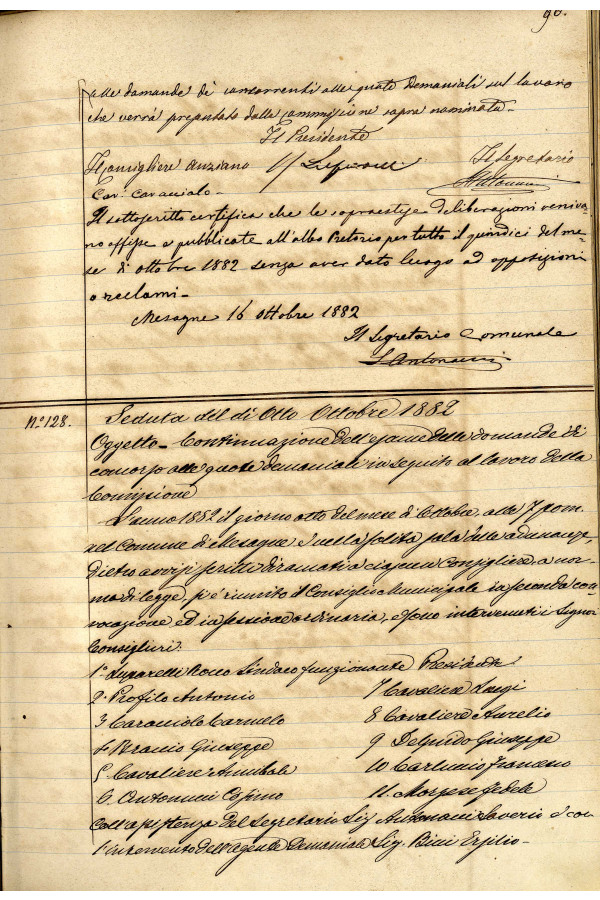 90.
alle domande di concorrenti alle quote Demaniali sul lavoro
che verrà presentato dalla commissione sopra nominata.
Il Presidente
Il Consigliere anziano Il Segretario
Cav. Caraciolo Antonucci
Il sottoscritto certifica che le sopraestese deliberazioni veniva-
no affisse e pubblicate all'albo Pretorio per tutto il quindici del me-
se di ottobre 1882 senza aver dato luogo ad opposizioni
o reclami.
Mesagne 16 ottobre 1882
Il Segretario Comunale
S Antonucci
N.º 128. Seduta del dì Otto Ottobre 1882
Oggetto - Continuazione dell'esame delle domande di
concorso alle quote demaniale in seguito al lavoro della
Commissione
L'anno 1882 il giorno otto del mese di Ottobre, alle 7 pom.
nel Comune di Mesagne e nella solita sala delle adunanze,
dietro avvisi scritti diramati a ciascun Consigliere, a nor-
ma di legge, si è riunito il Consiglio Municipale in seconda con-
vocazione ed in sessione ordinaria, e sono intervenuti i Signori
Consiglieri:
1º Luparelli Rocco Sindaco funzionante Presidente
2 Profilo Antonio 7 Cavaliere Luigi
3 Caraciolo Carmelo 8 Cavaliere Aurelio
4 Braccio Giuseppe 9 Delguido Giuseppe
5 Cavaliere Annibale 10 Carluccio Francesco
6. Antonucci Cosimo 11. Morgese Fedele
Coll'assistenza del Segretario Sig. Antonucci Saverio e con
l'intervento dell'agente Demaniale Sig. Bini Ersilio -